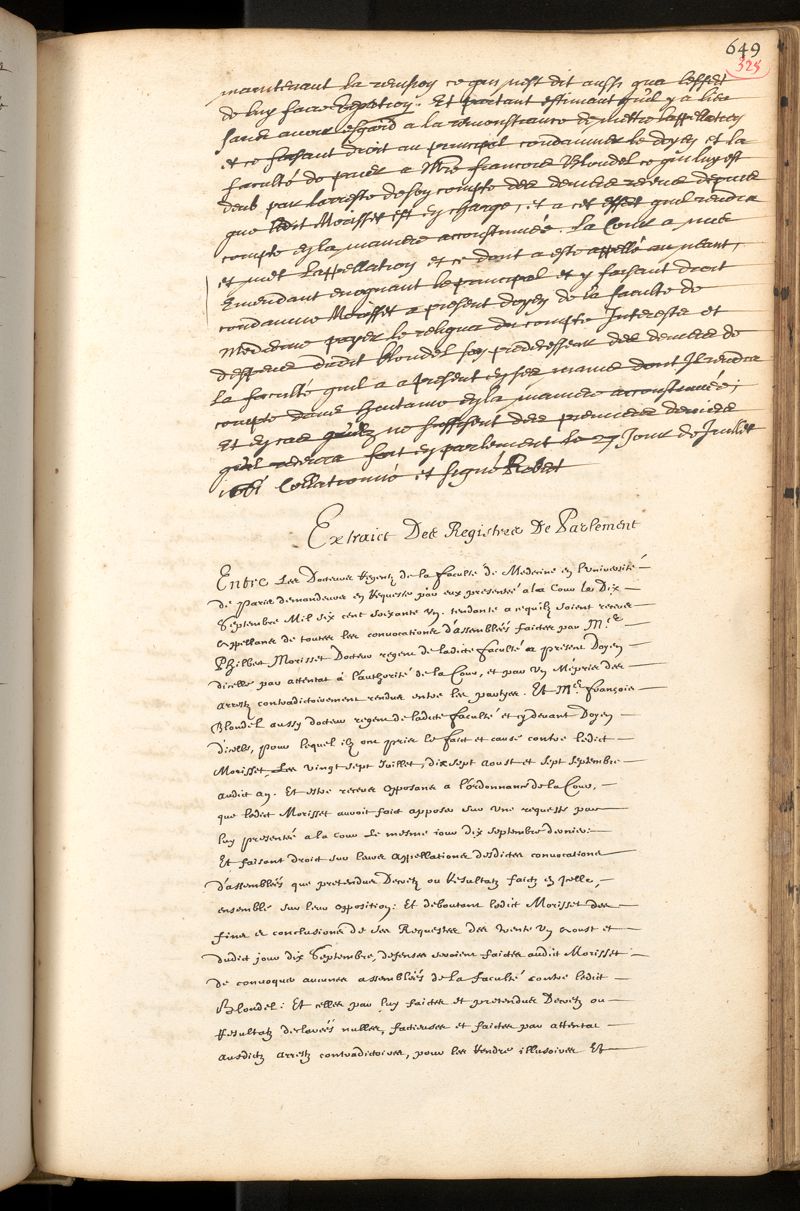 649
325
maintenant la reunion ce qui n'est dit aussi qu'a l'effect
de luy faire Exception. Et partant estimant qu'il y a lieu
sans avoir esgard a la remonstrance de mettre lappellation
et ce faisant droit au principal condamner le doyen et la
faculté de paier a Mre francois Blondel ce qui luy est
deub par larreste de son compte des deniers receus depuis
que ledit Morisset est en charge, et a cet effect qu'il rendra
compte en la maniere accoustumée. La Cour a mis
et met Lappellation et ce dont a esté appellé au neant,
Emendant evoquant le principal et y faisant droit
condamne Morisset a present doyen de la faculté de
Medecine payer le reliqua du compte Interests et
despens dudit Blondel son predecesseur des deniers de
la faculté qu'il a a present en ses mains dont Il rendra
compte dans huitaine en la maniere accoustumée;
Et en cas qu'ils ne suffisent des premiers deniers
qu'il recevra fait en parlement le 27 Jour de Juillet
1661 Collationné et signé Robert
Extraict Des Registres De Parlement
Entre Les Docteurs Regentz de la faculté de Medecine en l'université
de Paris demandeurs en Requeste par eux presentée a la Cour le Dix
Septembre Mil six cent soixante Un. tendante a ce qu'ilz soient receus
Appellans de toutes les convocations d'assemblées faictes par Me
Philbert Morisset Docteur regent de ladicte faculté a present Doyen
dicelle par attentat à l'authorité de la Cour, et par Un Mépris des
arrestz contradictoirement rendus entre les partyes. Et Me François
Blondel aussy docteur regent de ladicte faculté et cy devant Doyen
d'icelle, pour lequel ilz ont pris le faict et cause contre ledict
Morisset Les vingt sept Juillet, dix sept aoust et sept septembre
audict an. Et estre receus opposans a l'ordonnance de la Cour,
que ledict Morisset auroit faict apposer sur Une requeste par
luy presentée a la cour Le mesme jour dix septembre dernier
Et faisant droict sur leurs appellations desdictes convocations
d'assemblées que pretendus Decretz ou Resultatz faictz en Icelles,
ensemble sur leur opposition: Et deboutant ledict Morisset des
fins et conclusions de ses Requestes des trente Un aoust et
dudict jour dix Septembre, defenses seroient faictes audict Morisset
de convoquer aucunes assemblées de la faculté contre ledict
Blondel: Et celles par luy faictes et pretendus Decretz ou
Resultatz declarées nulles, factieuses et faictes par attentat
ausdictz arrestz contradictoires, pour les Rendre illusoires Et